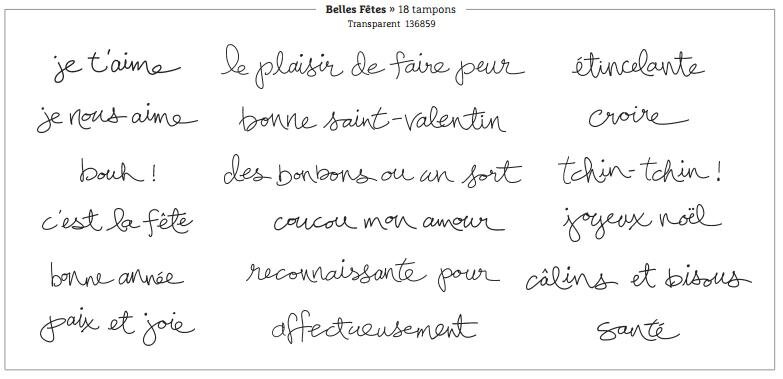 Belles Fêtes » 18 tampons
Transparent 136859
je t'aime
le plaisir de faire peur
étincelante
je nous aime
bonne saint-valentin
croire
bouh !
des bonbons ou un sort
tchin-tchin !
c'est la fête
coucou mon amour
joyeux noël
bonne année
reconnaissante pour
câlins et bisous
paix et joie
affectueusement
santé